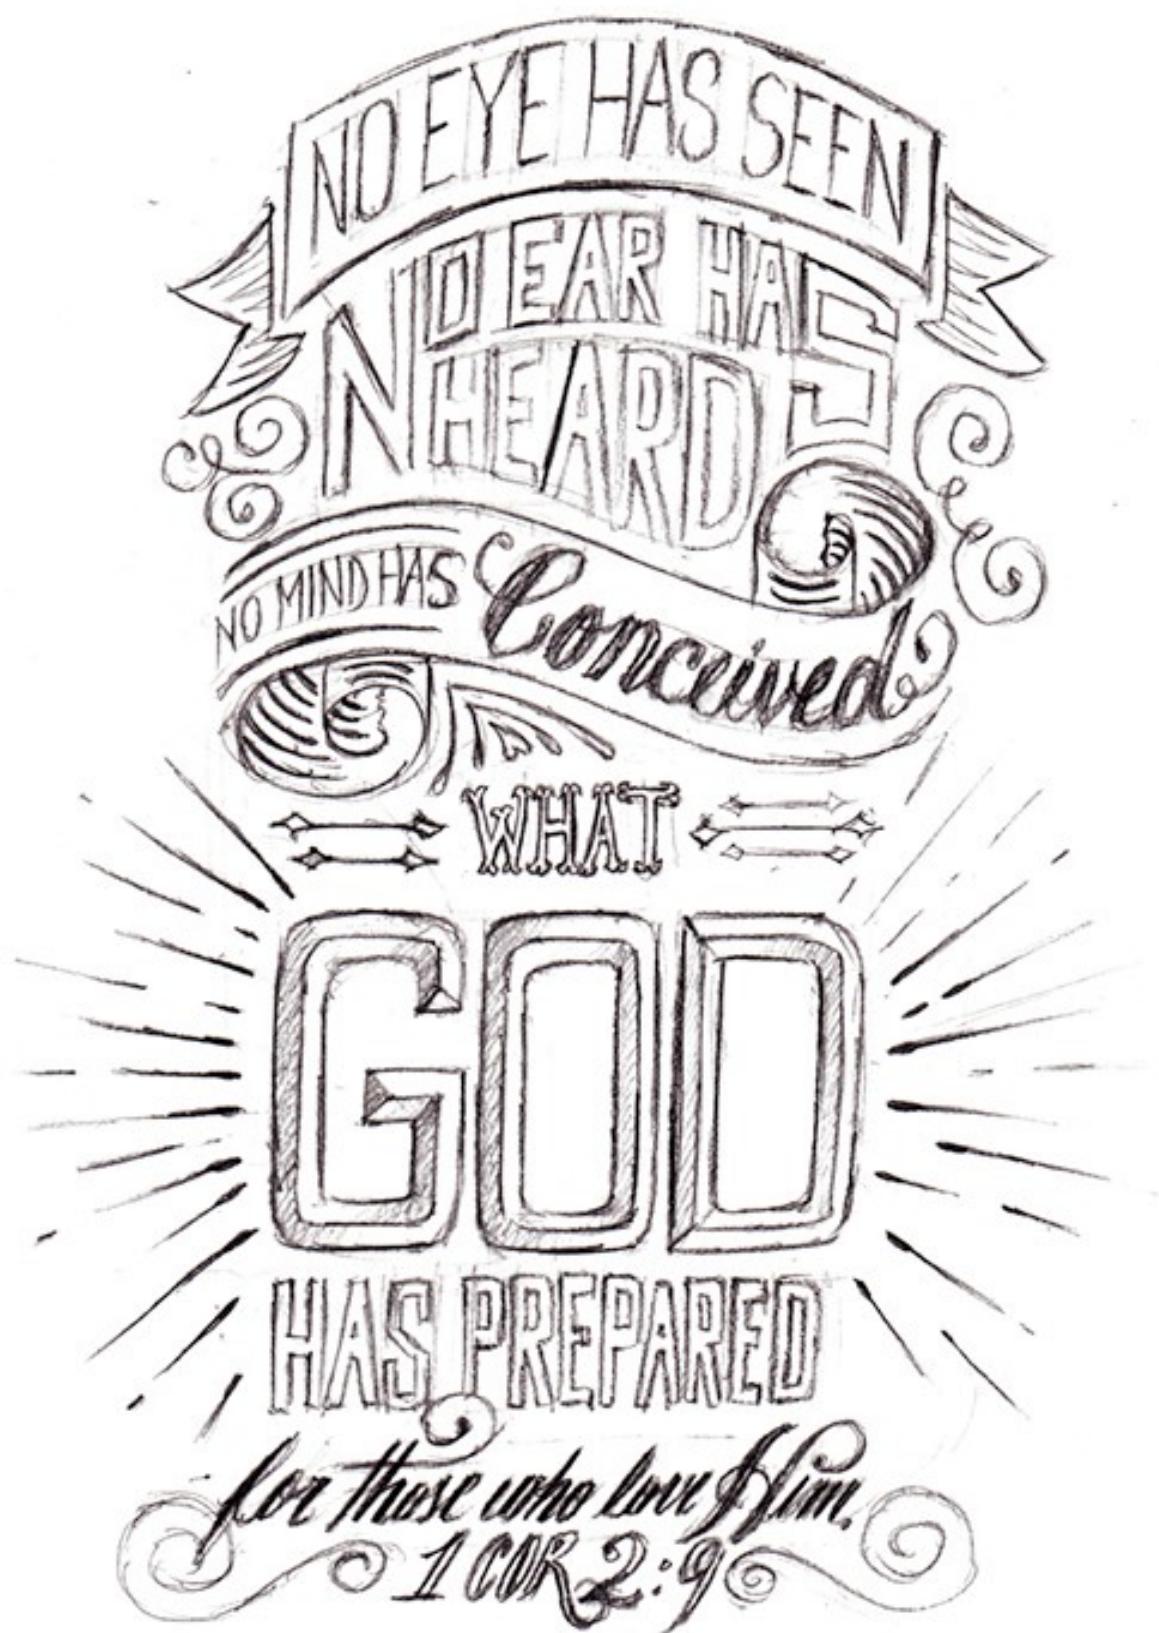 NO EYE HAS SEEN
NO EAR HAS
HEARD
NO MIND HAS Conceived
WHAT
GOD
HAS PREPARED
for those who love Him.
1 COR 2:9